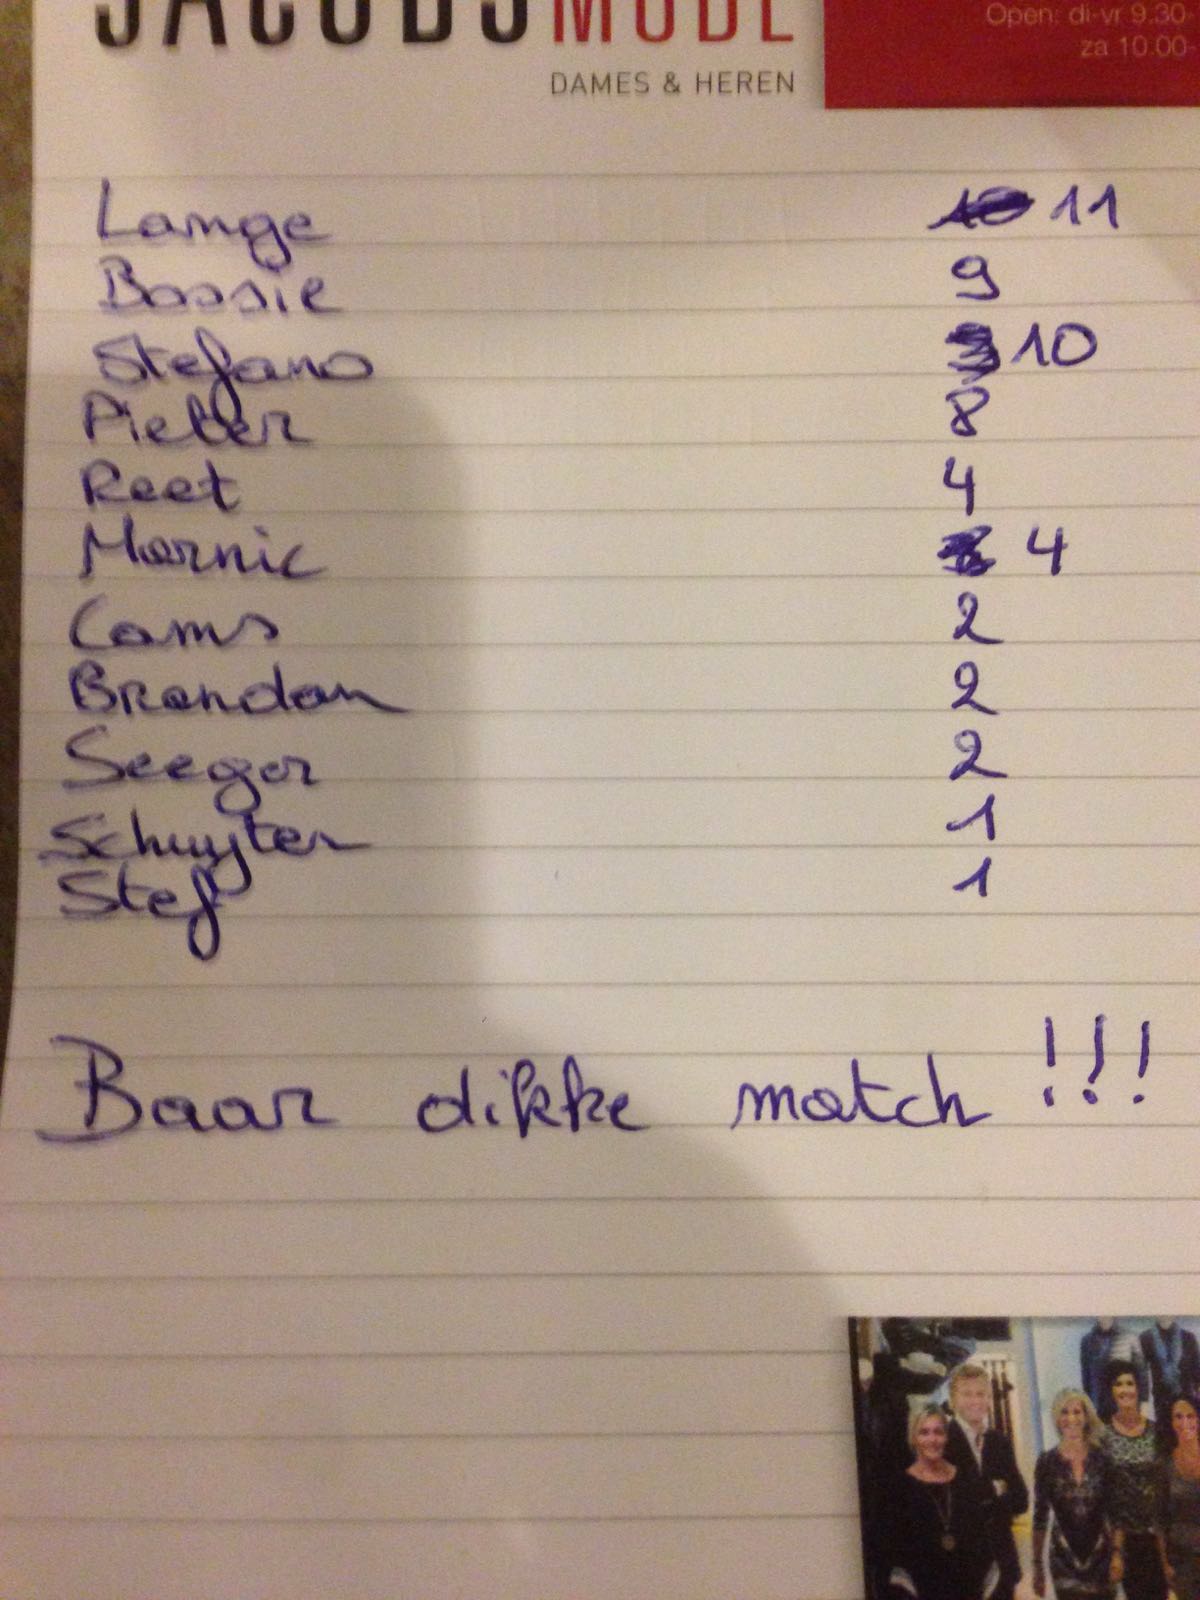 JACOBS MODE
DAMES & HEREN
Open: di-vr 9.30-
za 10.00-
Lange 11
Bassie 9
Stefano 10
Pieter 8
Reet 4
Marnic 4
Cams 2
Brandan 2
Seeger 2
Schuyter 1
Stef 1
Baar dikke match !!!